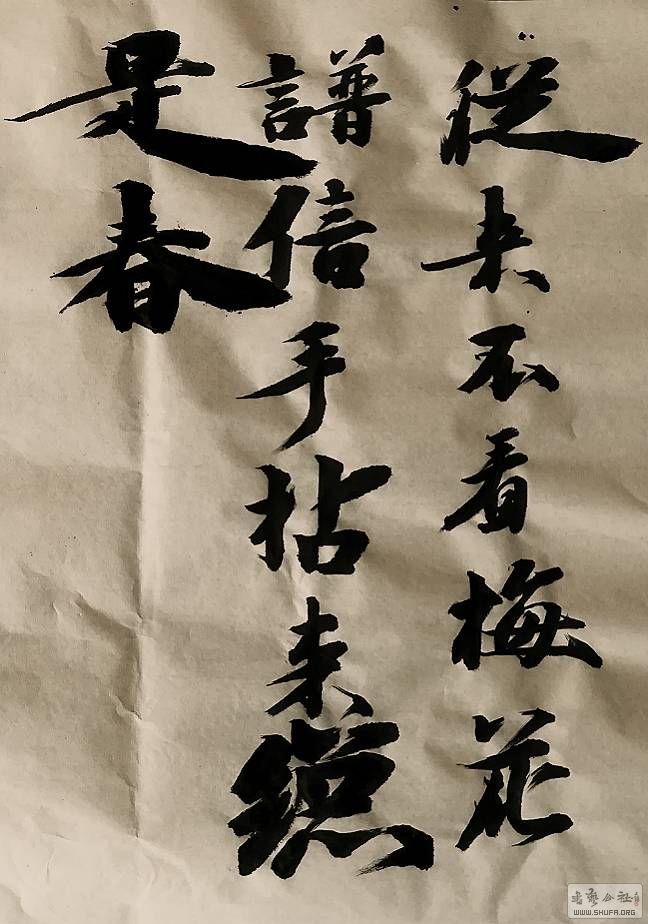 從来不看梅花
譜信手拈来總
是春
書藝公社
WWW.SHUFA.ORG